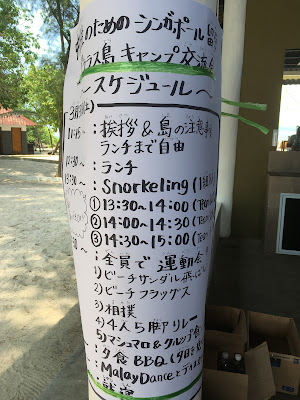 のための シンガポール
ラス島 キャンプ交流会
〜スケジュール〜
3月
:挨拶&島の注意事
ランチまで自由
:ランチ
:Snorkeling (1
① 13:30~14:00 (Team
② 14:00~14:30 (Team
③ 14:30~15:00 (Team
:全員で運動会
1) ビーチサンダル飛ばし
2) ビーチフラッグス
3) 相撲
4) 4人5脚リレー
5) マシュマロ&
:夕食 BBQ
:Malay Dance と